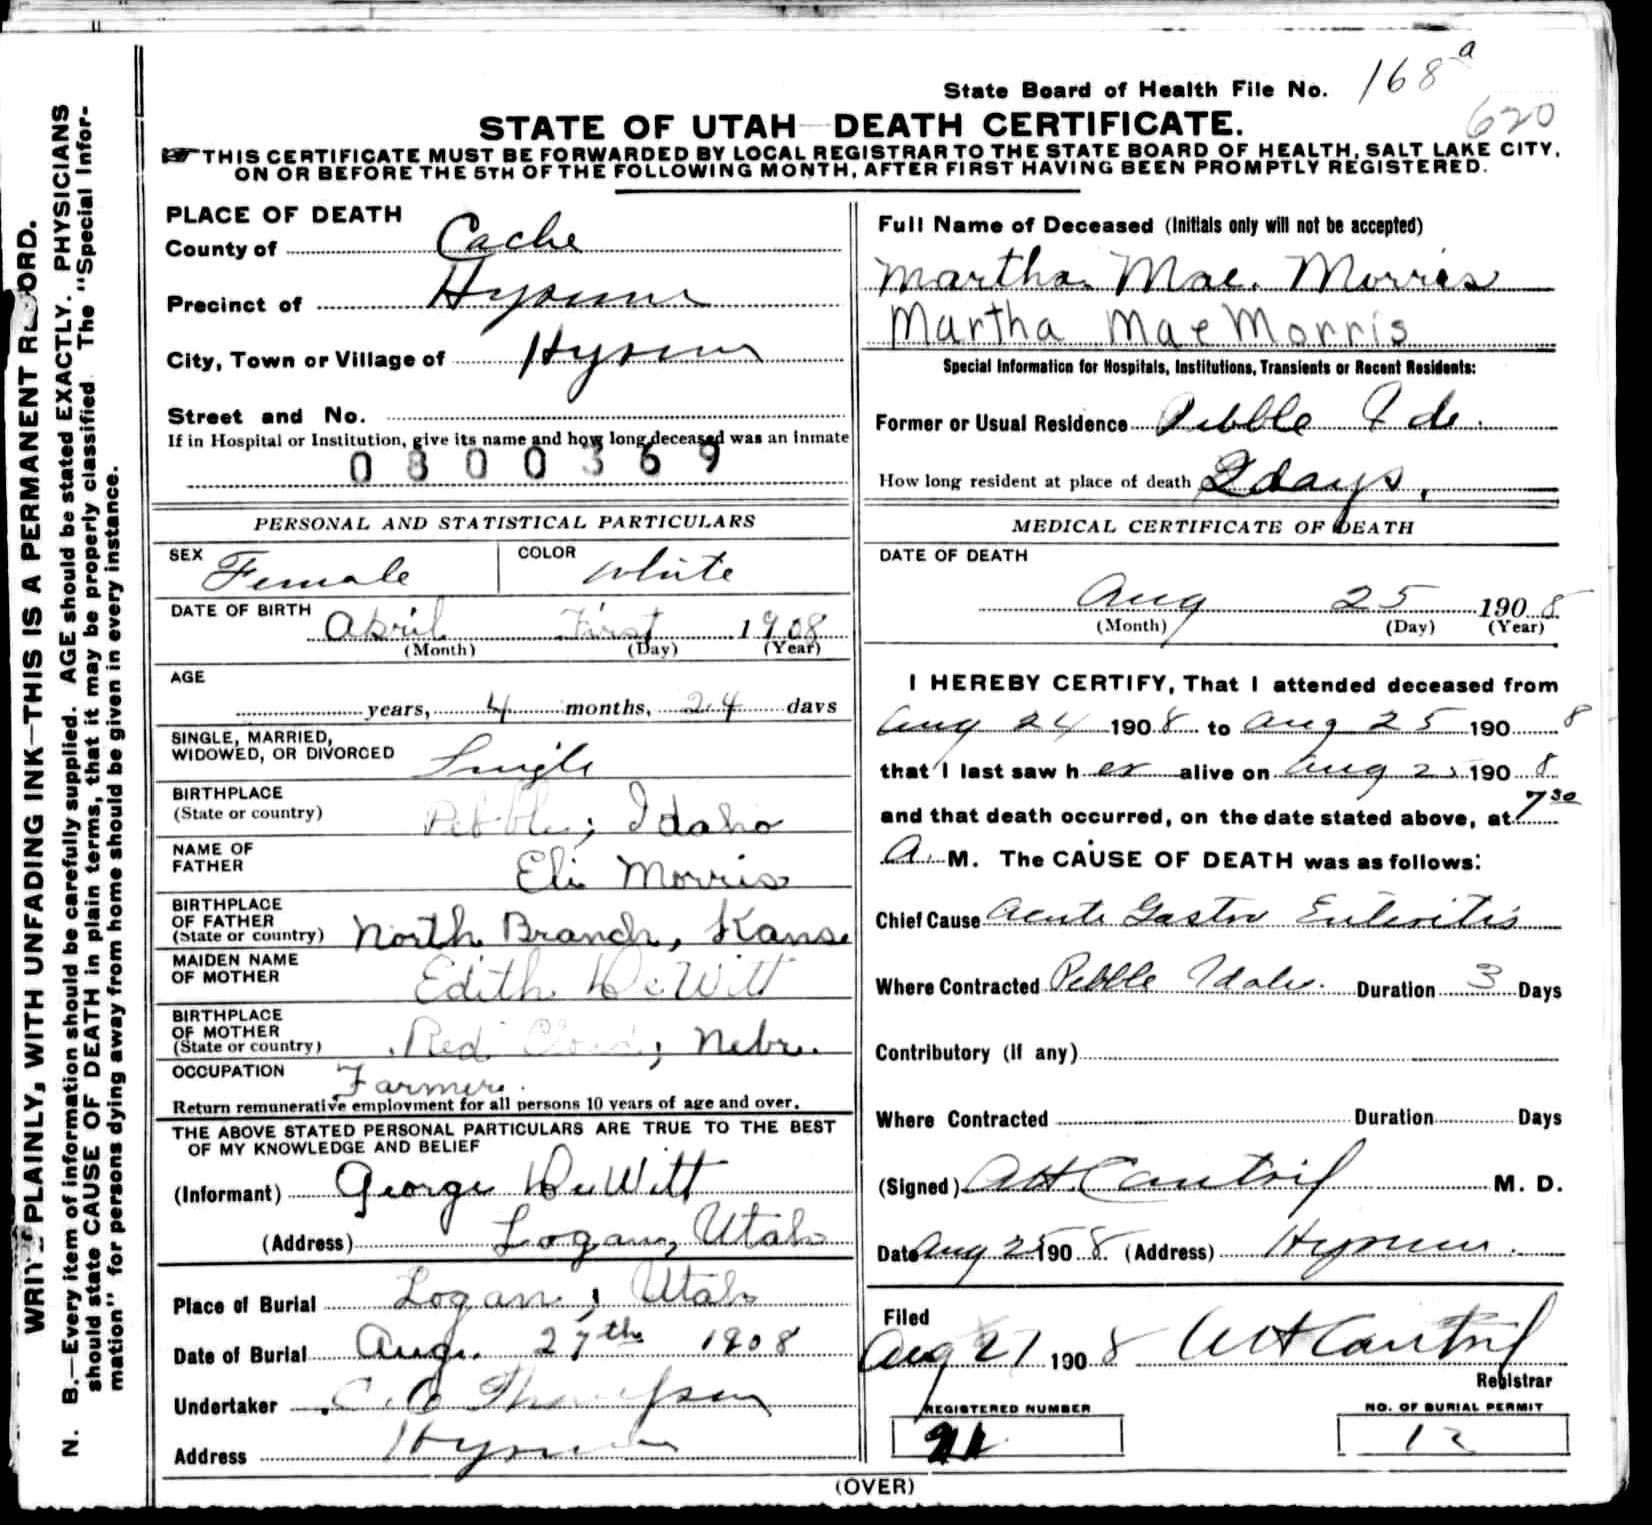 State Board of Health File No. 168 a
620
STATE OF UTAH—DEATH CERTIFICATE.
THIS CERTIFICATE MUST BE FORWARDED BY LOCAL REGISTRAR TO THE STATE BOARD OF HEALTH, SALT LAKE CITY,
ON OR BEFORE THE 5TH OF THE FOLLOWING MONTH, AFTER FIRST HAVING BEEN PROMPTLY REGISTERED.
WRITE PLAINLY, WITH UNFADING INK—THIS IS A PERMANENT RECORD.
N. B.—Every item of information should be carefully supplied. AGE should be stated EXACTLY. PHYSICIANS
should state CAUSE OF DEATH in plain terms, that it may be properly classified The "Special Infor-
mation" for persons dying away from home should be given in every instance.
PLACE OF DEATH
County of Cache
Precinct of Hyrum
City, Town or Village of Hyrum
Street and No.
If in Hospital or Institution, give its name and how long deceased was an inmate
0800369
PERSONAL AND STATISTICAL PARTICULARS
SEX Female COLOR white
DATE OF BIRTH April First 1908
(Month) (Day) (Year)
AGE
years, 4 months, 24 days
SINGLE, MARRIED,
WIDOWED, OR DIVORCED Single
BIRTHPLACE
(State or country) Pebble, Idaho
NAME OF
FATHER Eli Morris
BIRTHPLACE
OF FATHER
(State or country) North Branch, Kans
MAIDEN NAME
OF MOTHER Edith DeWitt
BIRTHPLACE
OF MOTHER
(State or country) Red Cloud, Nebr.
OCCUPATION Farmer.
Return remunerative employment for all persons 10 years of age and over.
THE ABOVE STATED PERSONAL PARTICULARS ARE TRUE TO THE BEST
OF MY KNOWLEDGE AND BELIEF
(Informant) George DeWitt
(Address) Logan, Utah
Place of Burial Logan, Utah
Date of Burial Aug. 27th 1908
Undertaker Thompson
Address Hyrum
Full Name of Deceased (Initials only will not be accepted)
Martha Mae. Morris
Martha Mae Morris
Special Information for Hospitals, Institutions, Transients or Recent Residents:
Former or Usual Residence Pebble Ide.
How long resident at place of death 2 days.
MEDICAL CERTIFICATE OF DEATH
DATE OF DEATH
Aug 25 1908
(Month) (Day) (Year)
I HEREBY CERTIFY, That I attended deceased from
Aug 24 1908 to Aug 25 1908
that I last saw her alive on Aug 25 1908
and that death occurred, on the date stated above, at 7 30
A. M. The CAUSE OF DEATH was as follows:
Chief Cause Acute Gastro Enteritis
Where Contracted Pebble Idaho. Duration 3 Days
Contributory (if any)
Where Contracted Duration Days
(Signed) AH Cantril M. D.
Date Aug 25 1908. (Address) Hyrum.
Filed
Aug 27 1908 AH Cantril
Registrar
REGISTERED NUMBER NO. OF BURIAL PERMIT
12
(OVER)